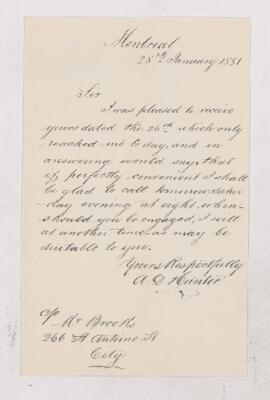 Montreal
28th January 1881
Sir
I was pleased to receive
yours dated the 26th which only
reached me to day, and in
answering would say that
if perfectly convenient I shall
be glad to call tomorrow, satur-
day evening at eight, when-
should you be engaged, I will
at another time as may be
suitable to you.
Yours Respectfully
A D Hunter
c/o Mr Brooks
266 St Antoine St
City